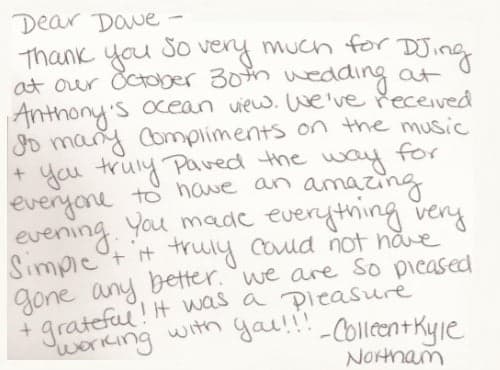 Dear Dave -
Thank you so very much for DJing
at our October 30th wedding at
Anthony's ocean view. We've received
so many compliments on the music
+ you truly Paved the way for
everyone to have an amazing
evening. You made everything very
Simple + it truly could not have
gone any better. we are so pleased
+ grateful! It was a pleasure
working with you!!! -Colleen+Kyle
Northam